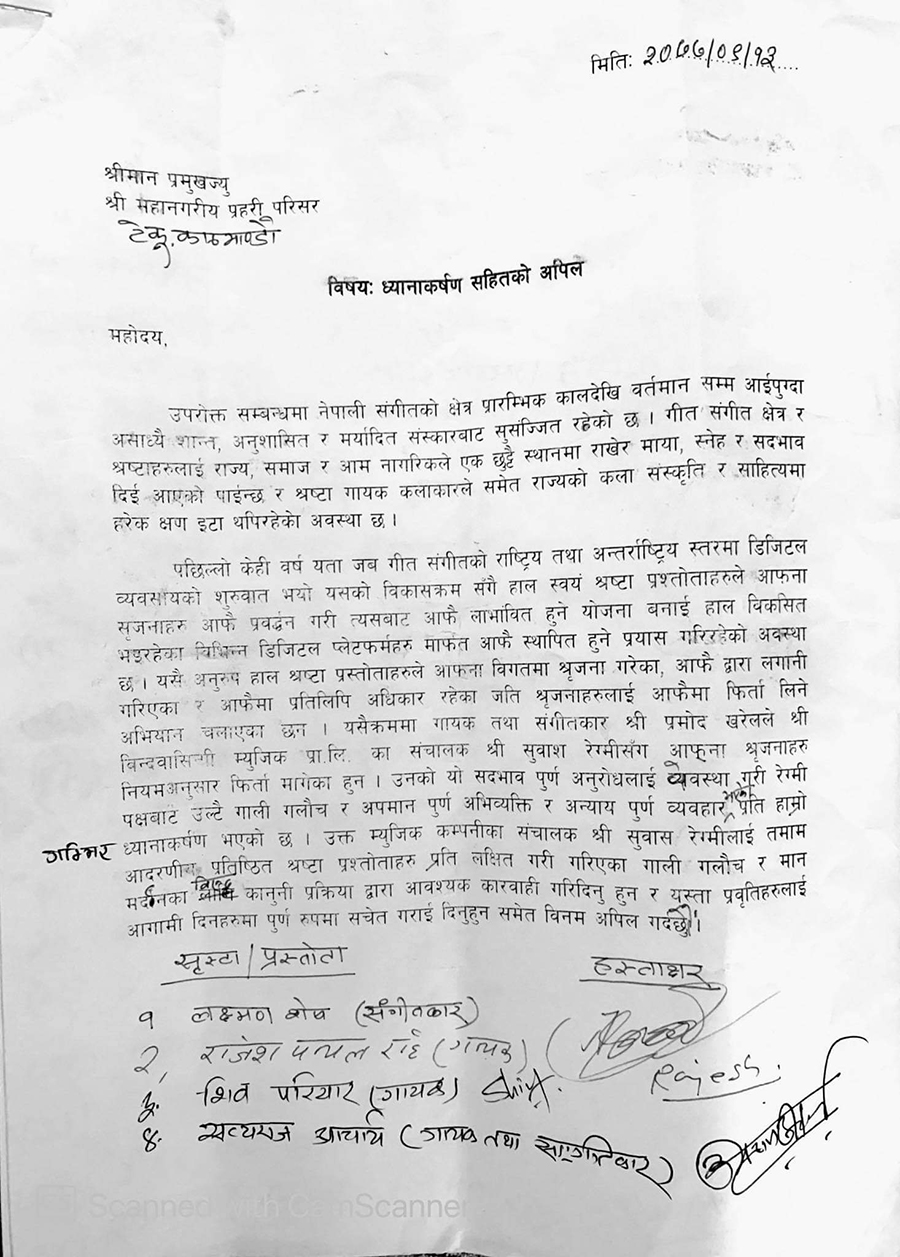 मिति: २०७७/०९/१३
श्रीमान प्रमुखज्यु
श्री महानगरीय प्रहरी परिसर
टेकू, काठमाण्डौ
विषय: ध्यानाकर्षण सहितको अपिल
महोदय,
उपरोक्त सम्बन्धमा नेपाली संगीतको क्षेत्र प्रारम्भिक कालदेखि वर्तमान सम्म आईपुग्दा
असाध्यै शान्त, अनुशासित र मर्यादित संस्कारबाट सुसज्जित रहेको छ । गीत संगीत क्षेत्र र
श्रष्टाहरुलाई राज्य, समाज र आम नागरिकले एक छुट्टै स्थानमा राखेर माया, स्नेह र सदभाव
दिई आएको पाईन्छ र श्रष्टा गायक कलाकारले समेत राज्यको कला संस्कृति र साहित्यमा
हरेक क्षण इटा थपिरहेको अवस्था छ ।
पछिल्लो केही वर्ष यता जब गीत संगीतको राष्ट्रिय तथा अन्तर्राष्ट्रिय स्तरमा डिजिटल
व्यवसायको शुरुवात भयो यसको विकासक्रम सँगै हाल स्वयं श्रष्टा प्रश्तोताहरुले आफ्ना
सृजनाहरु आफै प्रवर्द्धन गरी त्यसबाट आफै लाभांवित हुने योजना बनाई हाल विकसित
भइरहेका विभिन्न डिजिटल प्लेटफर्महरु मार्फत आफै स्थापित हुने प्रयास गरिरहेको अवस्था
छ । यसै अनुरुप हाल श्रष्टा प्रस्तोताहरुले आफ्ना विगतमा श्रृजना गरेका, आफै द्वारा लगानी
गरिएका र आफैमा प्रतिलिपि अधिकार रहेका जति श्रृजनाहरुलाई आफैमा फिर्ता लिने
अभियान चलाएका छन । यसैक्रममा गायक तथा संगीतकार श्री प्रमोद खरेलले श्री
विन्दवासिनी म्युजिक प्रा.लि. का संचालक श्री सुवाश रेग्मीसँग आफ्ना श्रृजनाहरु
नियमअनुसार फिर्ता मागेका हुन । उनको यो सदभाव पुर्ण अनुरोधलाई वेवस्था गरी रेग्मी
पक्षबाट उल्टै गाली गलौच र अपमान पुर्ण अभिव्यक्ति र अन्याय पुर्ण व्यवहार प्रति हाम्रो
गम्भिर ध्यानाकर्षण भएको छ । उक्त म्युजिक कम्पनीका संचालक श्री सुवास रेग्मीलाई तमाम
आदरणीय प्रतिष्ठित श्रष्टा प्रश्तोताहरु प्रति लक्षित गरी गरिएका गाली गलौच र मान
मर्दनका विरुद्ध कानुनी प्रक्रिया द्वारा आवश्यक कारवाही गरिदिनु हुन र यस्ता प्रवृतिहरुलाई
आगामी दिनहरुमा पुर्ण रुपमा सचेत गराई दिनुहुन समेत विनम अपिल गर्दछौं ।
सृस्टा / प्रस्तोता हस्ताक्षर
१ लक्ष्मण शेष (संगीतकार)
२, राजेश पायल राई (गायक) Rajesh
३. शिव परियार (गायक) Shiva
४. सत्यराज आचार्य (गायक तथा संगीतकार)
Scanned with CamScanner